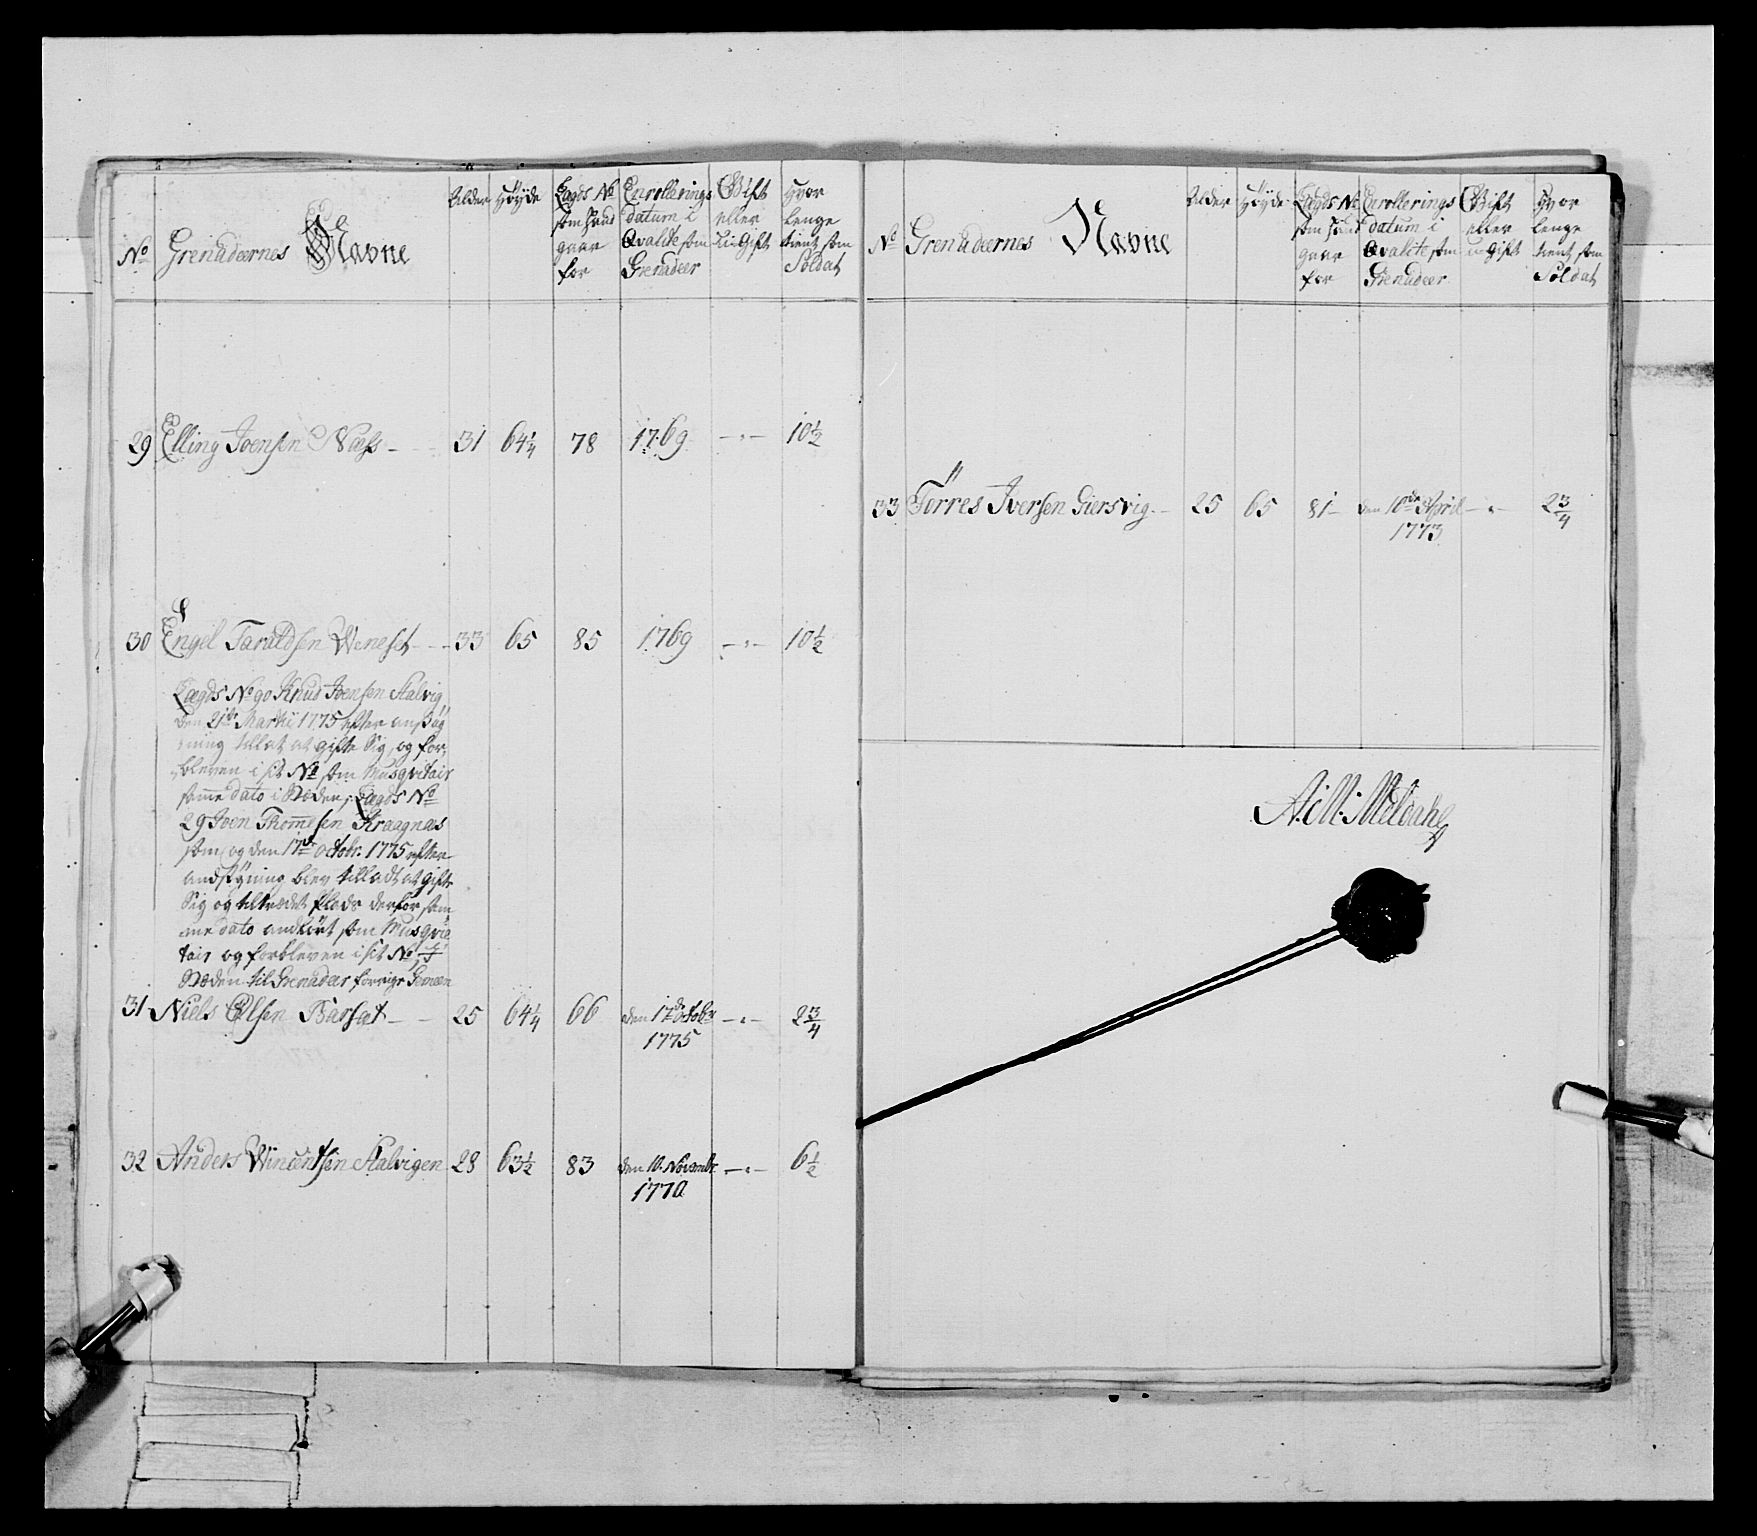 No Grenadeernes Navne Alder Høyde Lægds No som hand gaar for Enrollerings datum i Qvalite som Grenadeer Gift eller u-Gift Hvor lenge tient som Soldat
29 Elling Joensen Næss 31 64¼ 78 1769 -"- 10½
30 Engel Taraldsen Weneset 33 65 85 1769 -"- 10½
Lægds No 90 Knud Joensen Aalvig
den 21de Martii 1775 efter ansøg
ning tillat at gifte Sig, og for,
bleven i sit No som Musqvitair
samme dato i Steden, Lægds No
29 Joen Thommesen Kraagnæs
som og den 17de octobr. 1775 efter
andsøgning blev tilladt at Gifte
Sig og tiltrædet Plads derfor sam
me dato andført som Musqvi
tair og forbleven i sit No
Steden til Grenadeer forrige
31 Niels Olsen Barsæt 25 64¼ 66 den 17de Octobr -"- 2¾
1775
32 Anders Wincentsen Aalvigen 28 63½ 83 den 10. Novembr -"- 6½
1770
No Grenadeernes Navne Alder Høyde Lægds No som hand gaar for Enrollerings datum i Qvalite som Grenadeer Gift eller u-Gift Hvor lenge tient som Soldat
33 Törres Iversen Giersvig 25 65 81 den 10de April -"- 2¾
1773
A: M: Meldahl